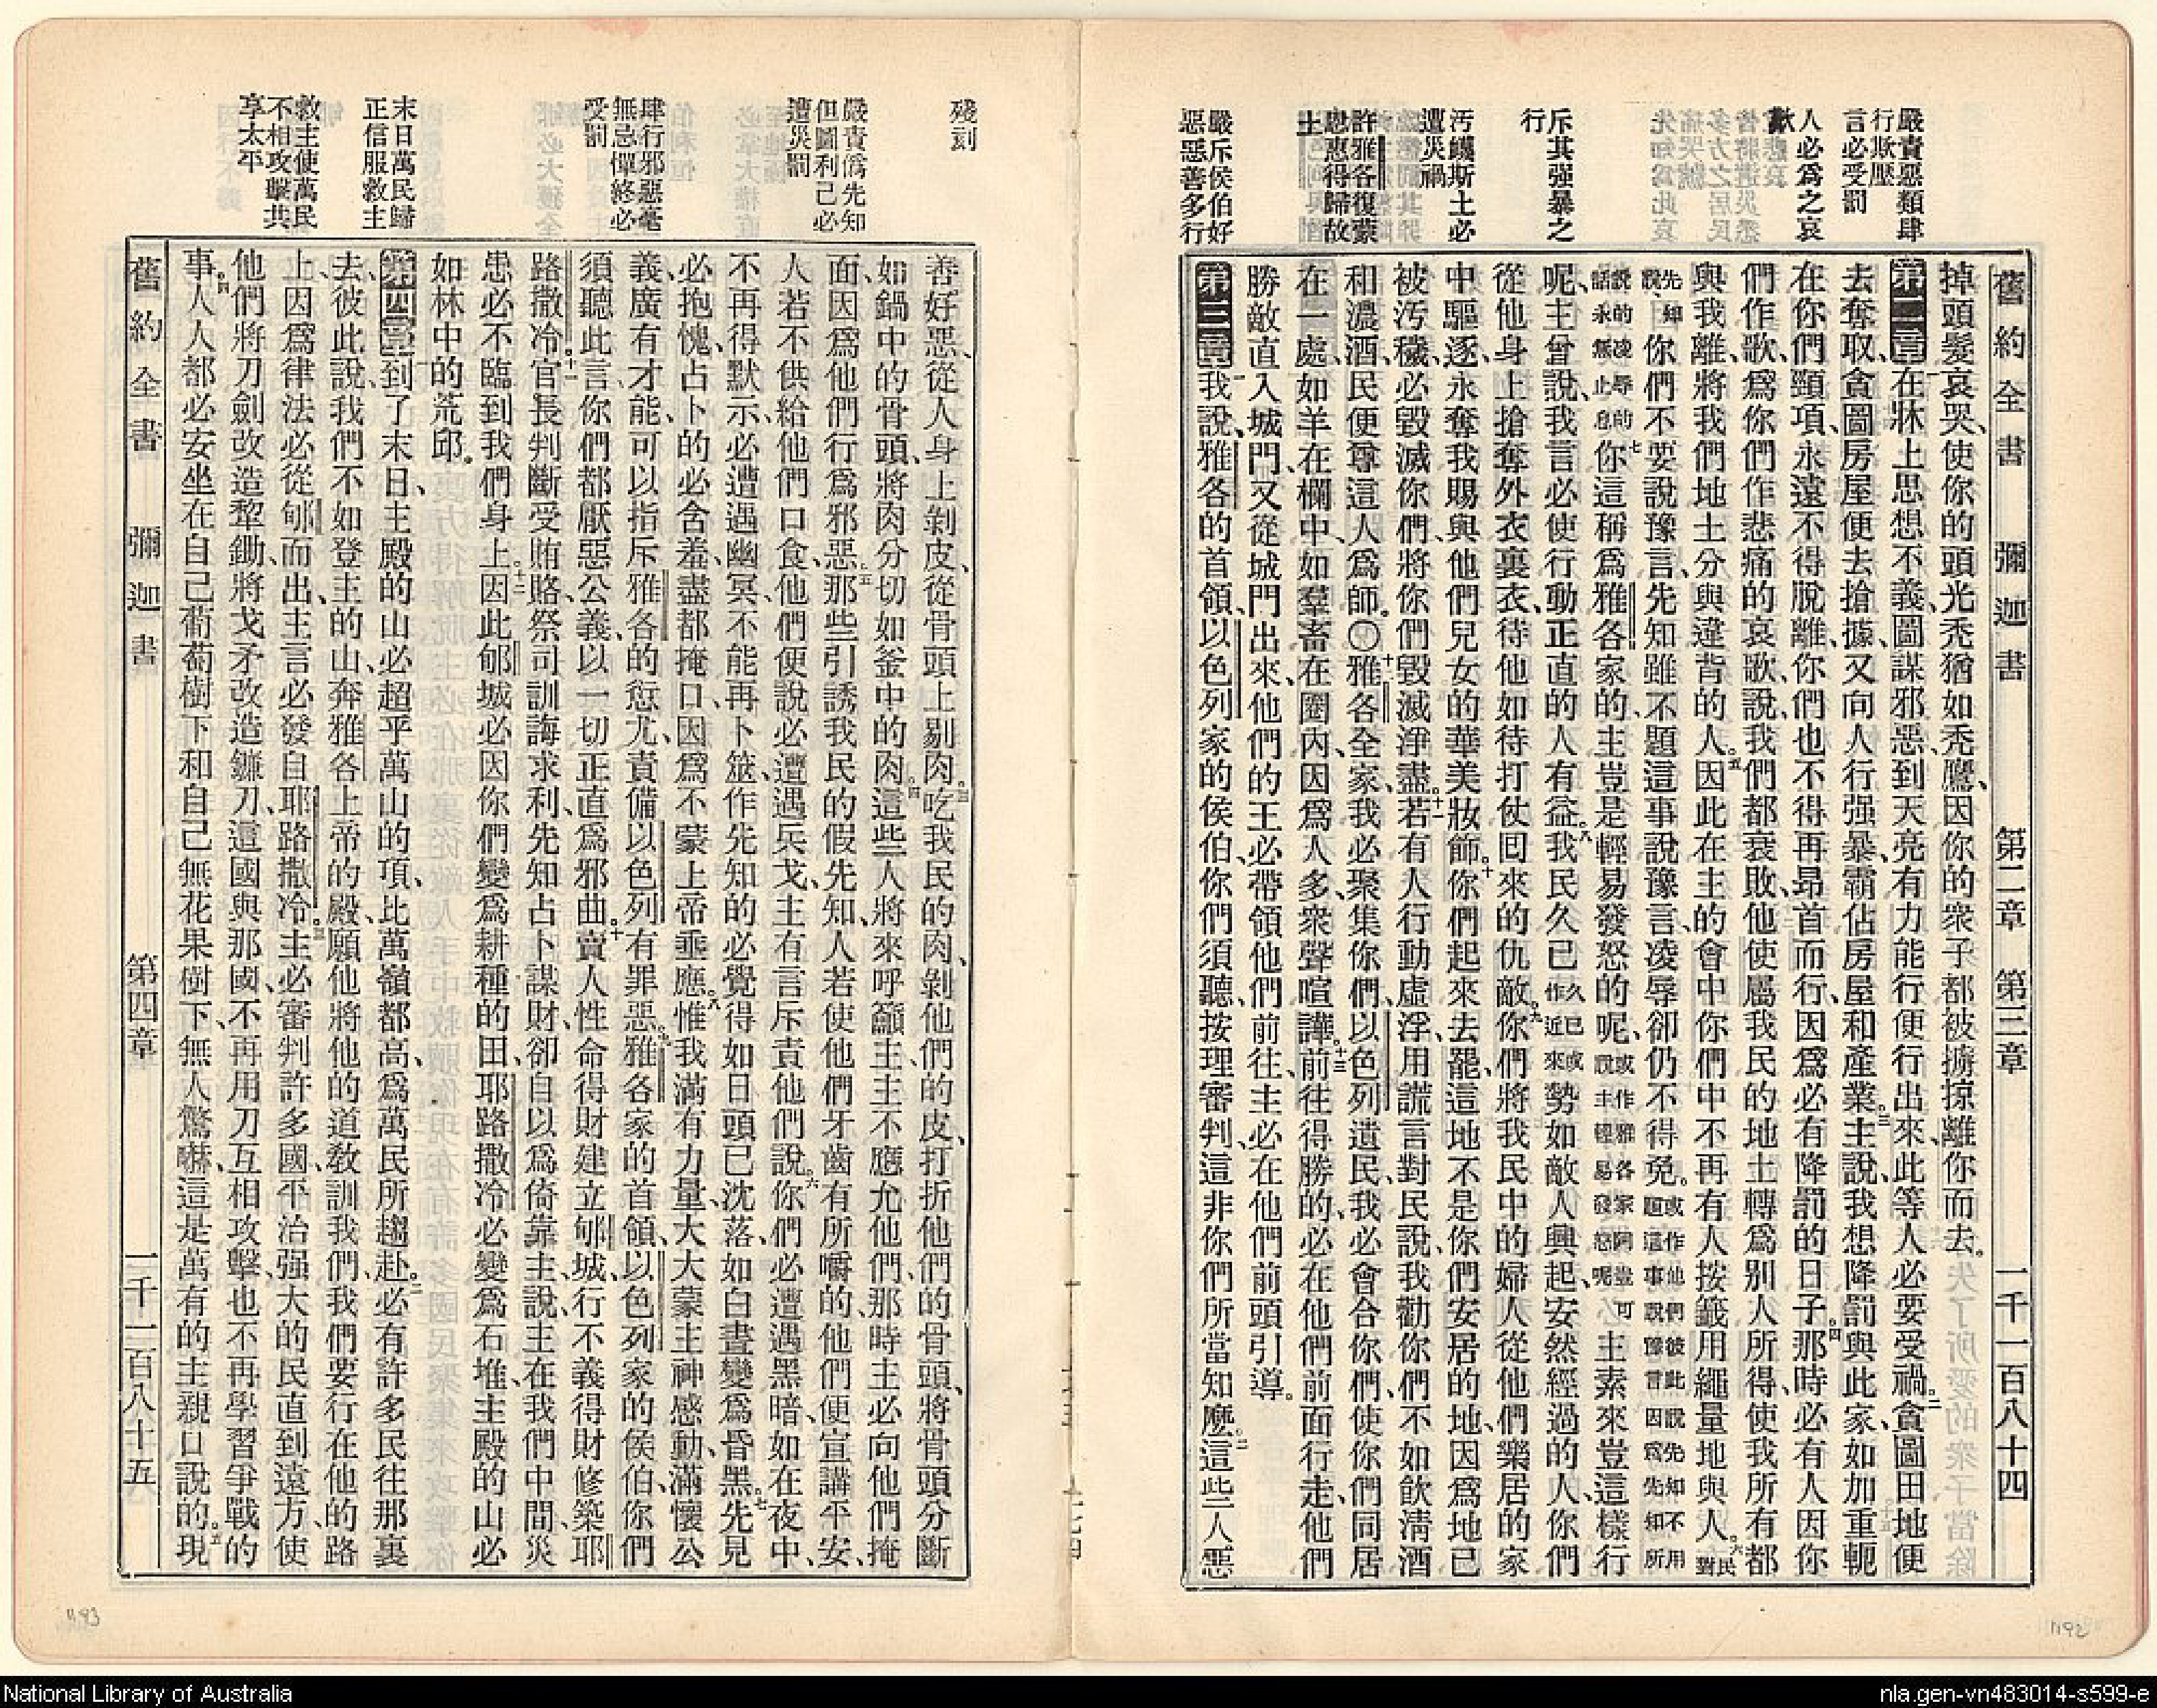 舊約全書 彌迦書 第二章 第三章 一千一百八十四
嚴責惡類肆
行欺壓
言必受罰
人必爲之哀
歎
斥其强暴之
行
汚衊斯土必
遭災禍
許雅各復蒙
恩惠得歸故
土
嚴斥侯伯好
惡惡善多行
掉頭髮哀哭、使你的頭光禿猶如禿鷹、因你的衆子都被擄掠離你而去。
第二章一在牀上思想不義、圖謀邪惡、到天亮有力能行便行出來、此等人必要受禍。二貪圖田地便
去奪取、貪圖房屋便去搶據、又向人行强暴、霸佔房屋和產業。三主說、我想降罰與此家、如加重軛
在你們頸項、永遠不得脫離、你們也不得再昂首而行、因爲必有降罰的日子。四那時必有人因你
們作歌、爲你們作悲痛的哀歌、說、我們都衰敗、他使屬我民的地土轉爲别人所得、使我所有都
與我離、將我們地土分與違背的人。五因此在主的會中、你們中不再有人按籤用繩量地與人。六民對
先知說、卻你們不要說豫言、先知雖不題這事說豫言、凌辱卻仍不得免。或作他們彼此說先知不用題這事說豫言因爲先知所
說的凌辱的話永無止息七你這稱爲雅各家的、主豈是輕易發怒的呢、或作雅各家阿豈可說主輕易發怒呢主素來豈這樣行
呢、主曾說、我言必使行動正直的人有益。八我民久已久已或作近來勢如敵人興起、安然經過的人、你們
從他身上搶奪外衣裏衣、待他如待打仗囘來的仇敵。九你們將我民中的婦人從他們樂居的家
中驅逐、永奪我賜與他們兒女的華美妝飾。十你們起來去罷、這地不是你們安居的地、因爲地已
被汚穢、必毀滅你們、將你們毀滅淨盡。十一若有人行動虛浮、用謊言對民說、我勸你們不如飲清酒
和濃酒、民便尊這人爲師。〇十二雅各全家、我必聚集你們、以色列遺民、我必會合你們、使你們同居
在一處、如羊在欄中、如羣畜在圈內、因爲人多、衆聲喧譁。十三前往得勝的、必在他們前面行走、他們
勝敵直入城門、又從城門出來、他們的王必帶領他們前往、主必在他們前頭引導。
第三章一我說、雅各的首領、以色列家的侯伯、你們須聽、按理審判、這非你們所當知麽。二這些人惡
殘刻
嚴責僞先知
但圖利己必
遭災罰
肆行邪惡毫
無忌憚終必
受罰
末日萬民歸
正信服救主
救主使萬民
不相攻擊共
享太平
善好惡、從人身上剝皮、從骨頭上剔肉。三吃我民的肉、剝他們的皮、打折他們的骨頭、將骨頭分斷
如鍋中的骨頭、將肉分切如釜中的肉。四這些人將來呼籲主、主不應允他們、那時主必向他們掩
面、因爲他們行爲邪惡。五那些引誘我民的假先知、人若使他們牙齒有所嚼的、他們便宣講平安、
人若不供給他們口食、他們便說必遭遇兵戈、主有言斥責他們說、六你們必遭遇黑暗、如在夜中、
不再得默示、必遭遇幽冥、不能再卜筮、作先知的必覺得如日頭已沈落、如白晝變爲昏黑。七先見
必抱愧、占卜的必含羞、盡都掩口、因爲不蒙上帝垂應。八惟我滿有力量、大大蒙主神感動、滿懷公
義、廣有才能、可以指斥雅各的愆尤、責備以色列有罪惡。九雅各家的首領、以色列家的侯伯、你們
須聽此言、你們都厭惡公義、以一切正直爲邪曲。十賣人性命得財建立郇城、行不義得財修築耶
路撒冷。十一官長判斷受賄賂、祭司訓誨求利、先知占卜謀財、卻自以爲倚靠主、說、主在我們中間、災
患必不臨到我們身上。十二因此郇城必因你們變爲耕種的田、耶路撒冷必變爲石堆、主殿的山必
如林中的荒邱。
第四章一到了末日、主殿的山必超乎萬山的項、比萬嶺都高、爲萬民所趨赴。二必有許多民往那裏
去、彼此說、我們不如登主的山、奔雅各上帝的殿、願他將他的道敎訓我們、我們要行在他的路
上、因爲律法必從郇而出、主言必發自耶路撒冷。三主必審判許多國、平治强大的民、直到遠方、使
他們將刀劍改造犂鋤、將戈矛改造鐮刀、這國與那國、不再用刀互相攻擊、也不再學習爭戰的
事。四人人都必安坐在自己葡萄樹下、和自己無花果樹下、無人驚嚇、這是萬有的主親口說的。五現
舊約全書 彌迦書 第四章 一千一百八十五
1193
1192
National Library of Australia
nla.gen-vn483014-s599-e